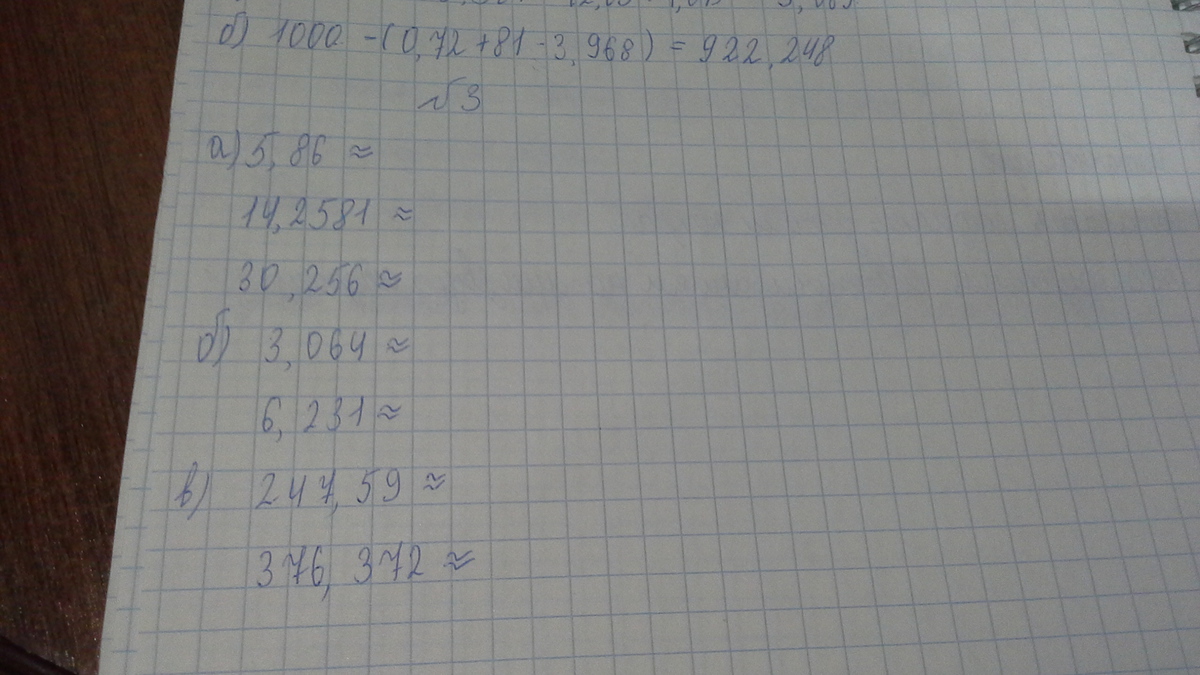 б) 1000 -(0,72+81-3,968) = 922,248
№3
а) 5,86 ≈
14,2581 ≈
30,256 ≈
б) 3,064 ≈
6,231 ≈
в) 247,59 ≈
376,372 ≈